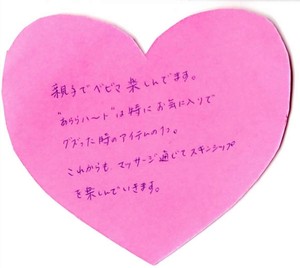 親子でベビマ楽しんでます。
"あららハ〜ト"は特にお気に入りで
グズった時のアイテムの1つ。
これからも マッサージ通じてスキンシップ
を楽しんでいきます。